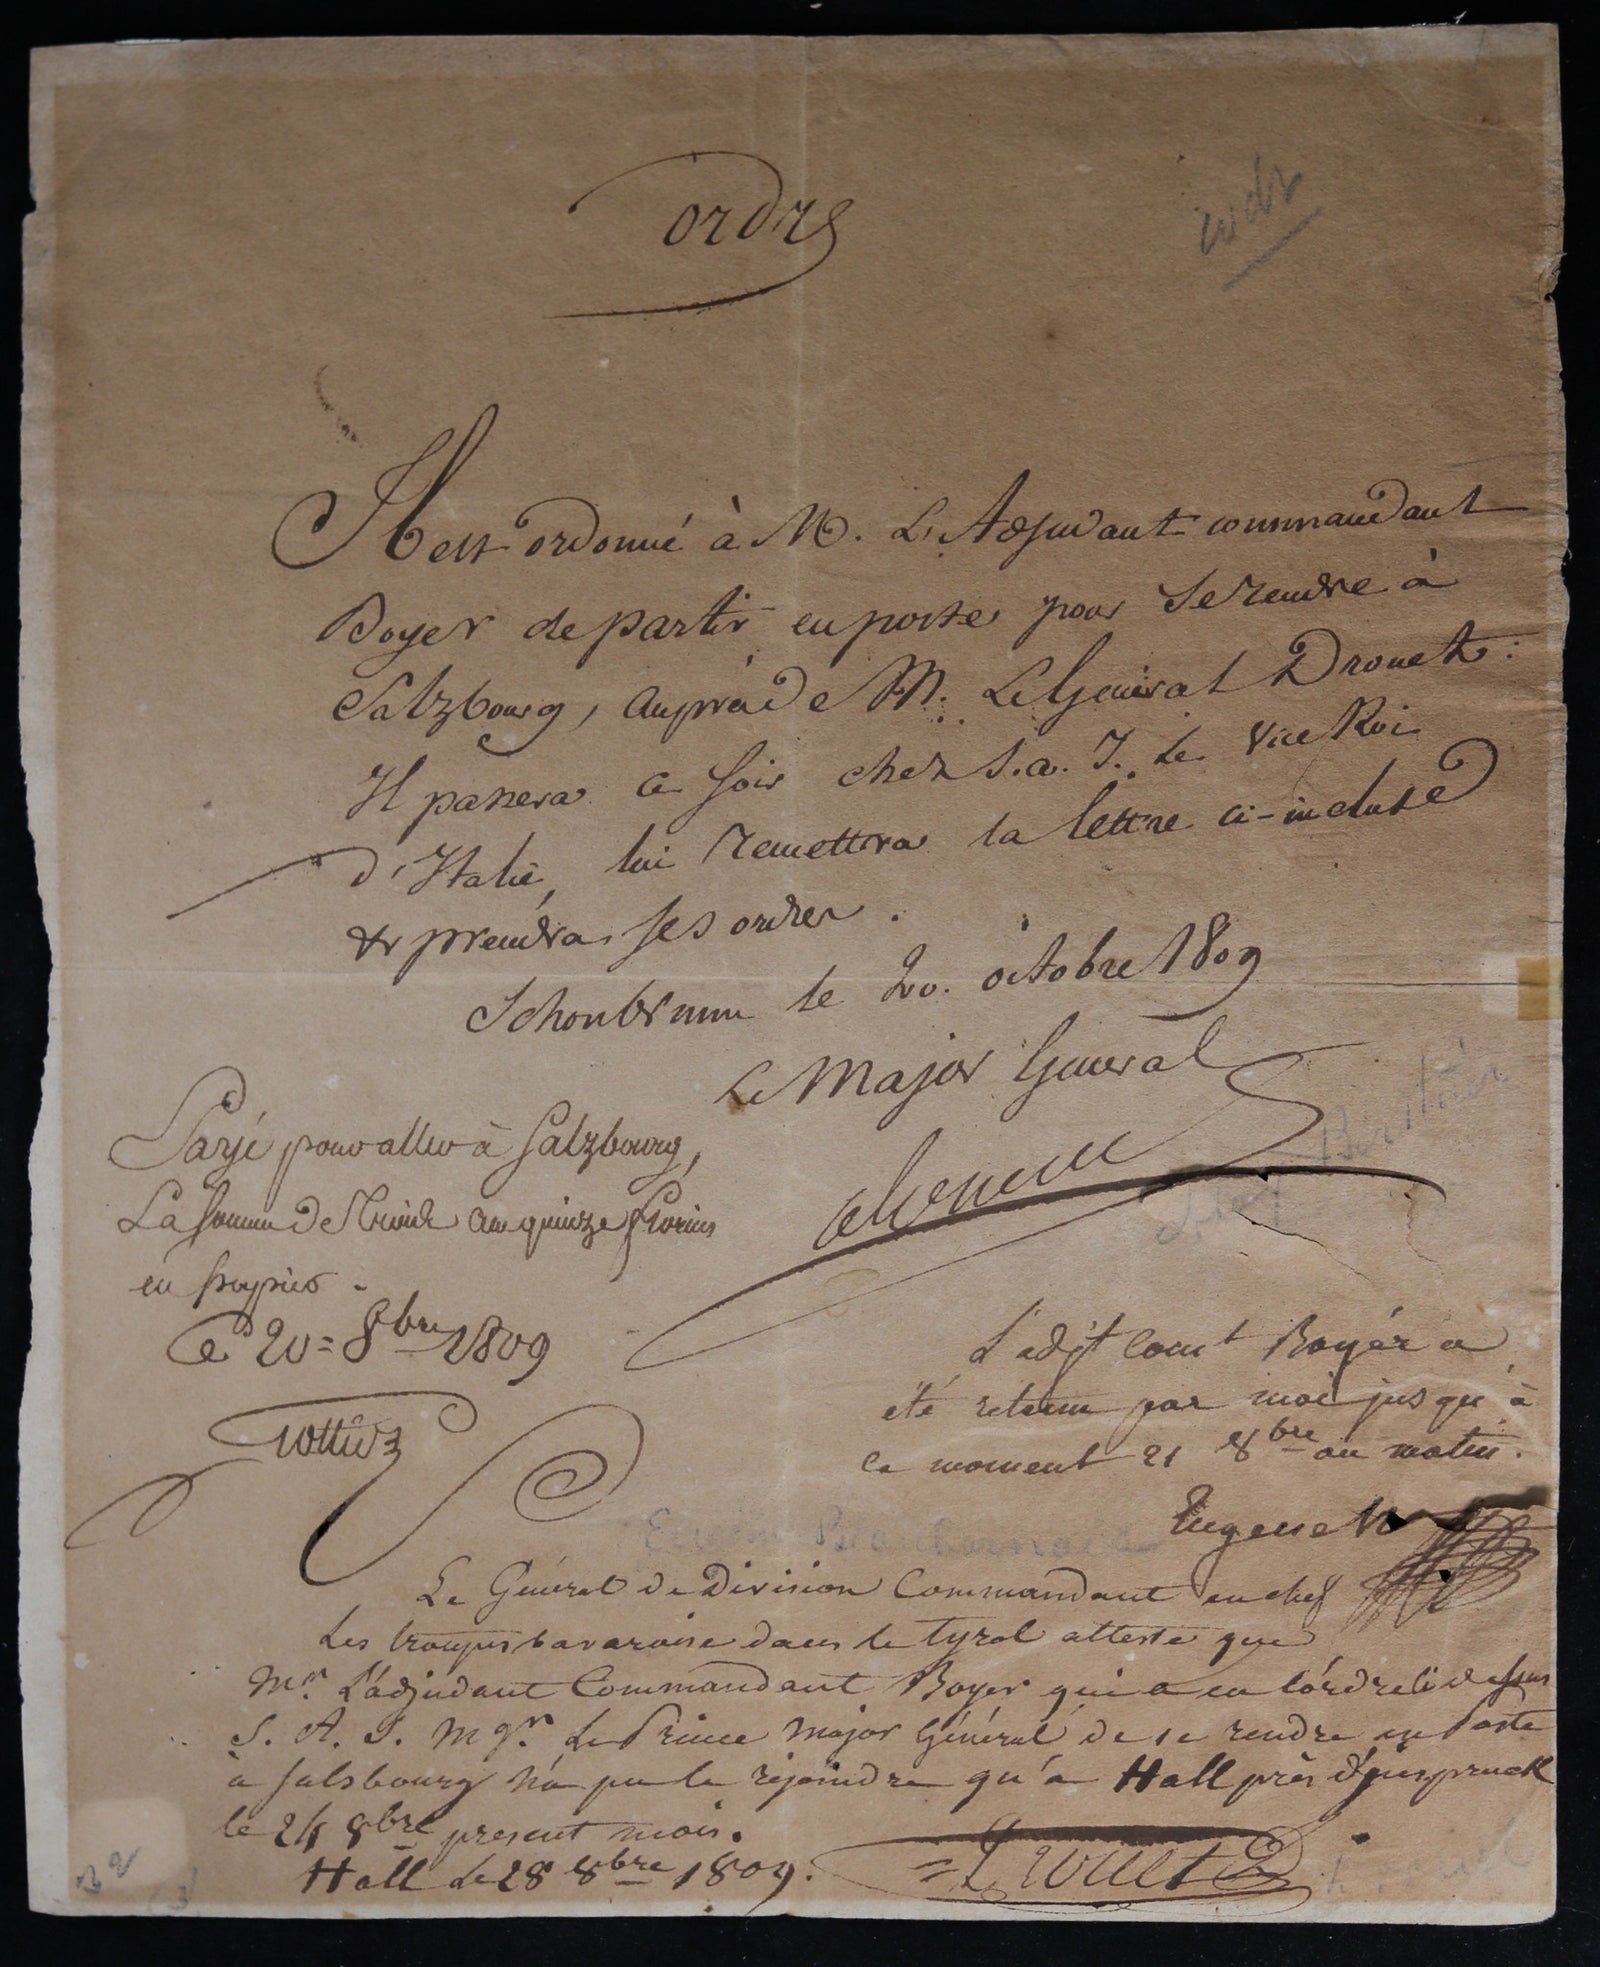 ordre
ordre
Il est ordonné à M. L'Adjudant commandant
Boyer de partir en poste pour se rendre à
Salzbourg, auprès de M. Le Général Drouet:
Il passera ce soir chez S. a. I. Le Vice Roi
d'Italie, lui remettra la lettre ci-incluse
et prendra ses ordres.
Schonbrunn le 20. octobre 1809
Le Major Général
Alexandre
Berthier
Payé pour aller à Salzbourg,
La Somme de Trente quinze florins
en papier.
Ce 20 = 8bre 1809
L'adjt Comt Boyer a
été retenu par moi jusqu'à
ce moment 21 8bre au matin.
Eugene N
Eugène Beauharnais
Le Général de Division Commandant en chef
les troupes bavaroise dans le tyrol atteste que
Mr. L'adjudant Commandant Boyer qui a eu l'órdre ci dessus
S. A. S. Mgr. Le Prince Major Général de se rendre en Poste
à Salsbourg n'a pu le rejoindre qu'a Hall près d'inspruck
le 24 8bre present mois.
Hall le 28 8bre 1809.
Drouet
32